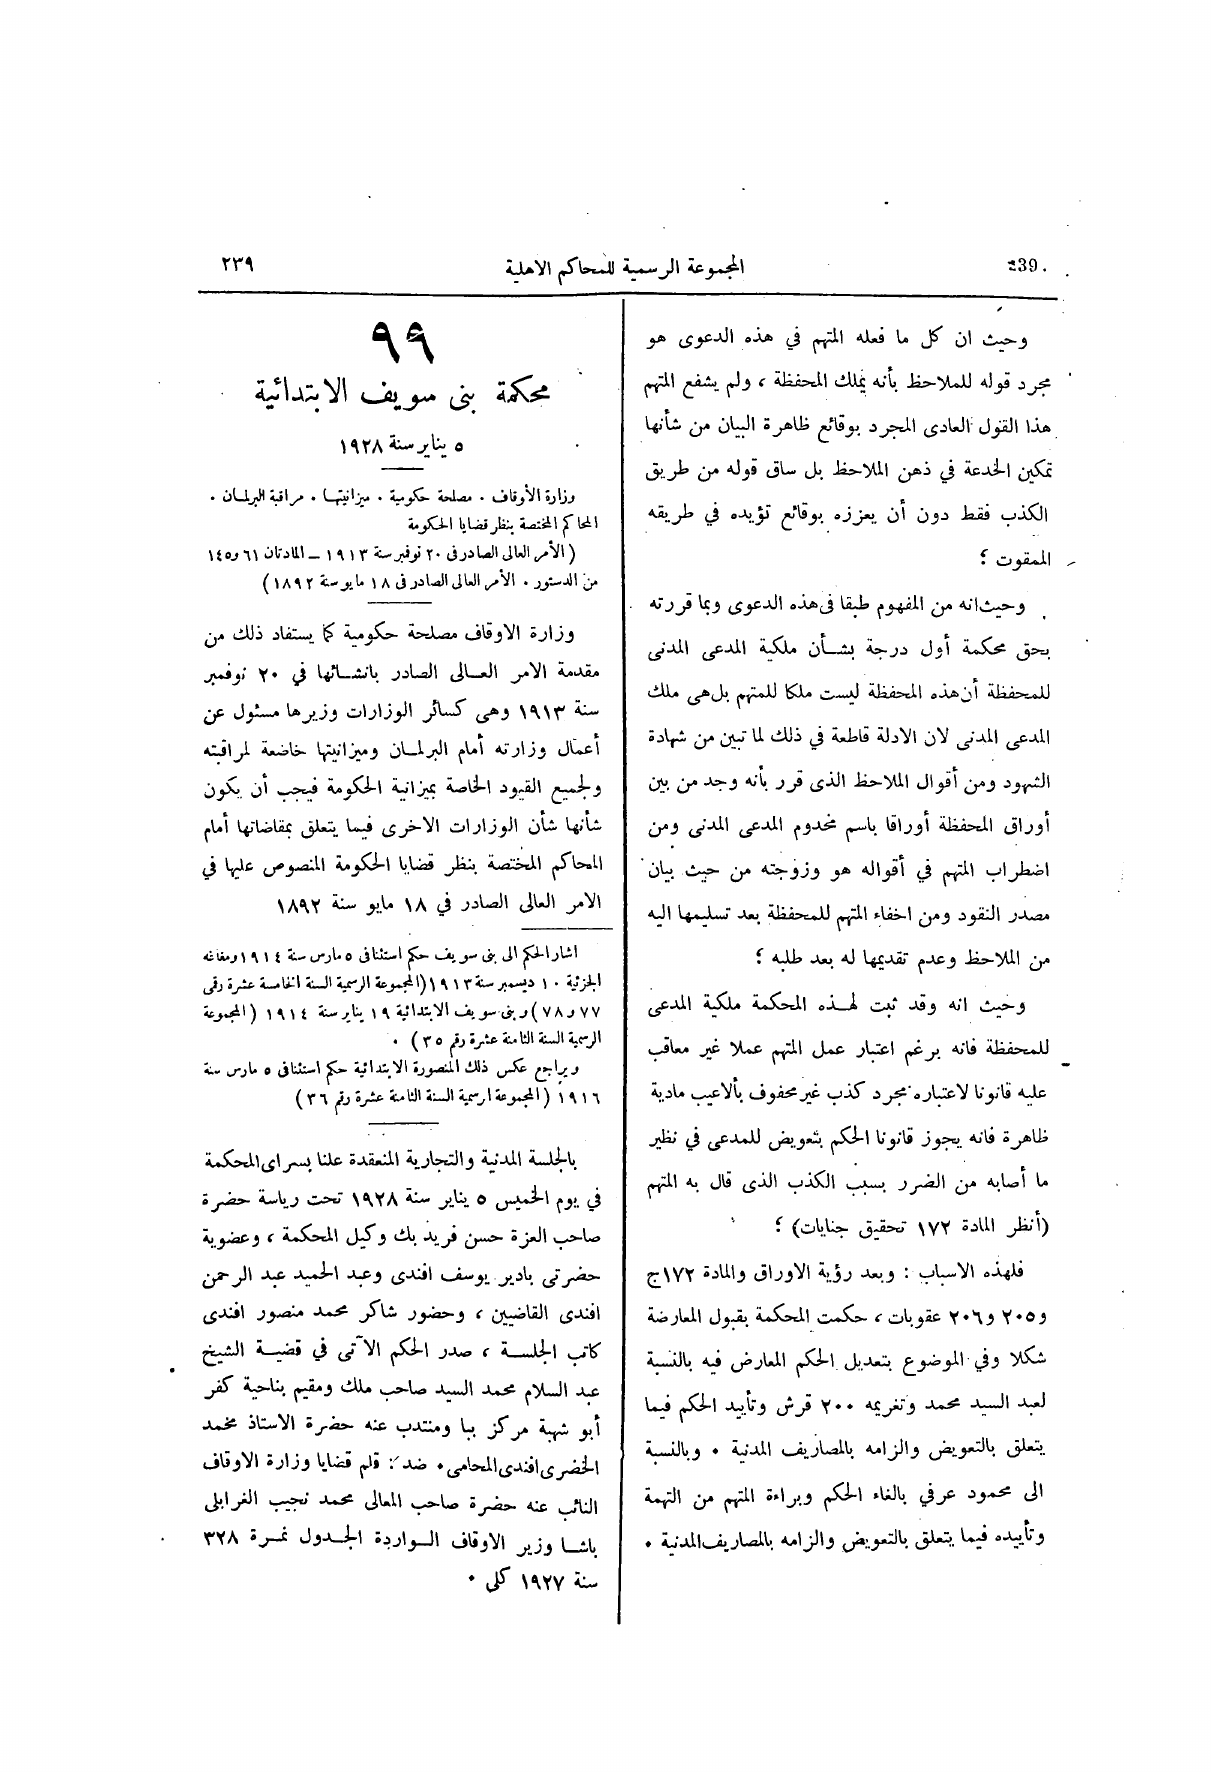 239
المجموعة الرسمية للمحاكم الاهلية
٢٣٩
وحيث ان كل ما فعله المتهم في هذه الدعوى هو
مجرد قوله للملاحظ بأنه يملك المحفظة ، ولم يشفع المتهم
هذا القول العادى المجرد بوقائع ظاهرة البيان من شأنها
تمكين الخدعة في ذهن الملاحظ بل ساق قوله من طريق
الكذب فقط دون أن يعززه بوقائع تؤيده في طريقه
الممقوت ؛
وحيث انه من المفهوم طبقا فى هذه الدعوى وبما قررته
بحق محكمة أول درجة بشأن ملكية المدعى المدنى
للمحفظة أن هذه المحفظة ليست ملكا للمتهم بل هى ملك
المدعى المدنى لان الادلة قاطعة في ذلك لما تبين من شهادة
الشهود ومن أقوال الملاحظ الذى قرر بأنه وجد من بين
أوراق المحفظة أوراقا باسم مخدوم المدعى المدنى ومن
اضطراب المتهم في أقواله هو وزوجته من حيث بيان
مصدر النقود ومن اخفاء المتهم للمحفظة بعد تسليمها اليه
من الملاحظ وعدم تقديمها له بعد طلبه ؛
وحيث انه وقد ثبت لهذه المحكمة ملكية المدعى
للمحفظة فانه برغم اعتبار عمل المتهم عملا غير معاقب
عليه قانونا لاعتباره مجرد كذب غير محفوف بألاعيب مادية
ظاهرة فانه يجوز قانونا الحكم بتعويض للمدعى في نظير
ما أصابه من الضرر بسبب الكذب الذى قال به المتهم
(أنظر المادة ١٧٢ تحقيق جنايات) ؛
فلهذه الاسباب : وبعد رؤية الاوراق والمادة ١٧٢ج
و٢٠٥ و٢٠٦ عقوبات ، حكمت المحكمة بقبول المعارضة
شكلا وفي الموضوع بتعديل الحكم المعارض فيه بالنسبة
لعبد السيد محمد وتغريمه ٢٠٠ قرش وتأييد الحكم فيما
يتعلق بالتعويض والزامه بالمصاريف المدنية . وبالنسبة
الى محمود عرفي بالغاء الحكم وبراءة المتهم من التهمة
وتأييده فيما يتعلق بالتعويض والزامه بالمصاريف المدنية .
٩٩
محكمة بنى سويف الابتدائية
٥ يناير سنة ١٩٢٨
وزارة الأوقاف . مصلحة حكومية . ميزانيتها . مراقبة البرلمان .
المحاكم المختصة بنظر قضايا الحكومة
(الأمر العالى الصادر فى ٢٠ نوفمبر سنة ١٩١٣ – المادتان ٦١ و١٤٥
من الدستور . الأمر العالى الصادر فى ١٨ مايو سنة ١٨٩٢)
وزارة الاوقاف مصلحة حكومية كما يستفاد ذلك من
مقدمة الامر العالى الصادر بانشائها في ٢٠ نوفمبر
سنة ١٩١٣ وهى كسائر الوزارات وزيرها مسئول عن
أعمال وزارته أمام البرلمان وميزانيتها خاضعة لمراقبته
ولجميع القيود الخاصة بميزانية الحكومة فيجب أن يكون
شأنها شأن الوزارات الاخرى فيما يتعلق بمقاضاتها أمام
المحاكم المختصة بنظر قضايا الحكومة المنصوص عليها في
الامر العالى الصادر في ١٨ مايو سنة ١٨٩٢
اشار الحكم الى بنى سويف حكم استئنافى ٥ مارس سنة ١٩١٤ ومغاغه
الجزئية ١٠ ديسمبر سنة ١٩١٣ (المجموعة الرسمية السنة الخامسة عشرة رقمى
٧٧ و٧٨) وبنى سويف الابتدائية ١٩ يناير سنة ١٩١٤ (المجموعة
الرسمية السنة الثامنة عشرة رقم ٣٥) .
ويراجع عكس ذلك المنصورة الابتدائية حكم استئنافى ٥ مارس سنة
١٩١٦ (المجموعة ارسمية السنة الثامنة عشرة رقم ٣٦)
بالجلسة المدنية والتجارية المنعقدة علنا بسراى المحكمة
في يوم الخميس ٥ يناير سنة ١٩٢٨ تحت رياسة حضرة
صاحب العزة حسن فريد بك وكيل المحكمة ، وعضوية
حضرتى بادير يوسف افندى وعبد الحميد عبد الرحمن
افندى القاضيين ، وحضور شاكر محمد منصور افندى
كاتب الجلسة ، صدر الحكم الآتى في قضية الشيخ
عبد السلام محمد السيد صاحب ملك ومقيم بناحية كفر
أبو شهبة مركز ببا ومنتدب عنه حضرة الاستاذ محمد
الخضرى افندى المحامى . ضد : قلم قضايا وزارة الاوقاف
النائب عنه حضرة صاحب المعالى محمد نجيب الغرابلى
باشا وزير الاوقاف الواردة الجدول نمرة ٣٢٨
سنة ١٩٢٧ كلى .